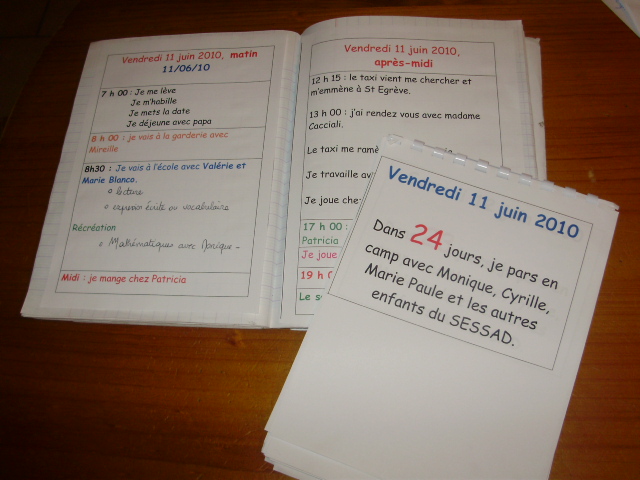 Vendredi 11 juin 2010, matin
11/06/10
7 h 00 : Je me lève
Je m'habille
Je mets la date
Je déjeune avec papa
8 h 00 : je vais à la garderie avec
Mireille
8h30 : Je vais à l'école avec Valérie et
Marie Blanco.
lecture
expression écrite ou vocabulaire
Récréation
Mathématiques avec Monique -
Midi : je mange chez Patricia
Vendredi 11 juin 2010,
après-midi
12 h 15 : le taxi vient me chercher et
m'emmène à St Egrève.
13 h 00 : j'ai rendez vous avec madame
Cacciali.
Le taxi me ramè
Je travaille av
Je joue che
17 h 00 :
Patricia
Je joue
19 h 0
Le s
Vendredi 11 juin 2010
Dans 24 jours, je pars en
camp avec Monique, Cyrille,
Marie Paule et les autres
enfants du SESSAD.